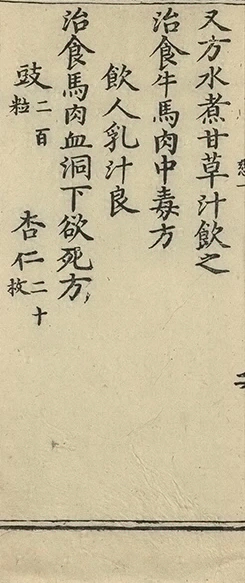 又方水煮甘草汁飲之
治食牛馬肉中毒方
飲人乳汁良
治食馬肉血洞下欲死方
豉二百粒 杏仁二十枚